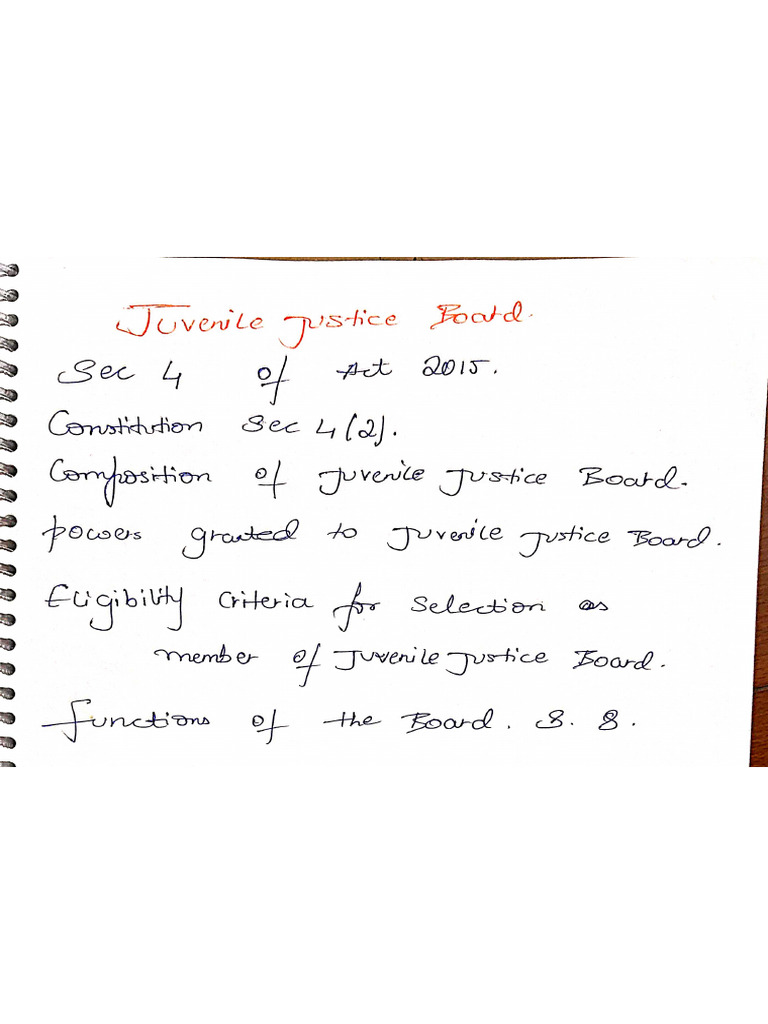 Juvenile Justice Board.
Sec 4 of Act 2015.
Constitution Sec 4(2).
Composition of Juvenile Justice Board.
powers granted to Juvenile Justice Board.
Eligibility criteria for selection as
member of Juvenile Justice Board.
Functions of the Board. S. 8.